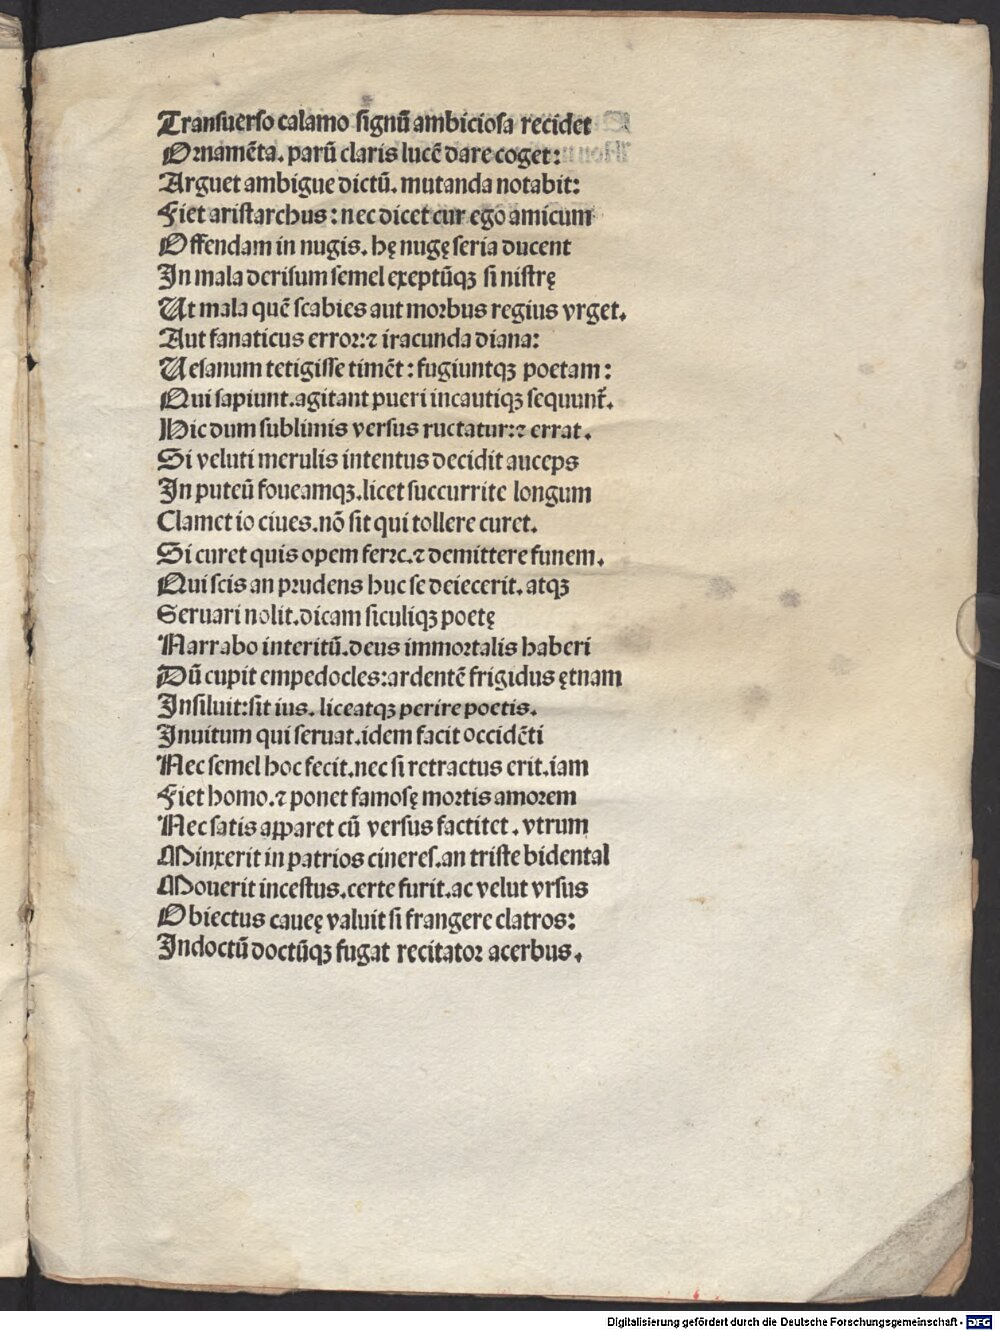 Tranſuerſo calamo ſignũ ambicioſa recidet
Ornamẽta. parũ claris lucẽ dare coget:
Arguet ambigue dictũ. mutanda notabit:
Fiet ariſtarchus: nec dicet cur ego amicum
Offendam in nugis. hę nugę ſeria ducent
In mala deriſum ſemel exeptũqꝫ ſiniſtrę
Ut mala quẽ ſcabies aut morbus regius vrget.
Aut fanaticus error: ⁊ iracunda diana:
Ueſanum tetigiſſe timẽt: fugiuntqꝫ poetam:
Qui ſapiunt. agitant pueri incautiqꝫ ſequunt̃.
Hic dum ſublimis verſus ructatur: ⁊ errat.
Si veluti merulis intentus decidit auceps
In puteũ foueamqꝫ. licet ſuccurrite longum
Clamet io ciues. nõ ſit qui tollere curet.
Si curet quis opem ferre. ⁊ demittere funem.
Qui ſcis an prudens huc ſe deiecerit. atqꝫ
Seruari nolit. dicam ſiculiqꝫ poetę
Narrabo interitũ. deus immortalis haberi
Dũ cupit empedocles: ardentẽ frigidus ętnam
Inſiluit: ſit ius. liceatqꝫ perire poetis.
Inuitum qui ſeruat. idem facit occidẽti
Nec ſemel hoc fecit. nec ſi retractus erit. iam
Fiet homo. ⁊ ponet famoſę mortis amorem
Nec ſatis apparet cũ verſus factitet. vtrum
Minxerit in patrios cinereſ. an triſte bidental
Mouerit inceſtus. certe furit. ac velut vrſus
Obiectus caueę valuit ſi frangere clatros:
Indoctũ doctũqꝫ fugat recitator acerbus.
Digitalisierung gefördert durch die Deutsche Forschungsgemeinschaft - DFG